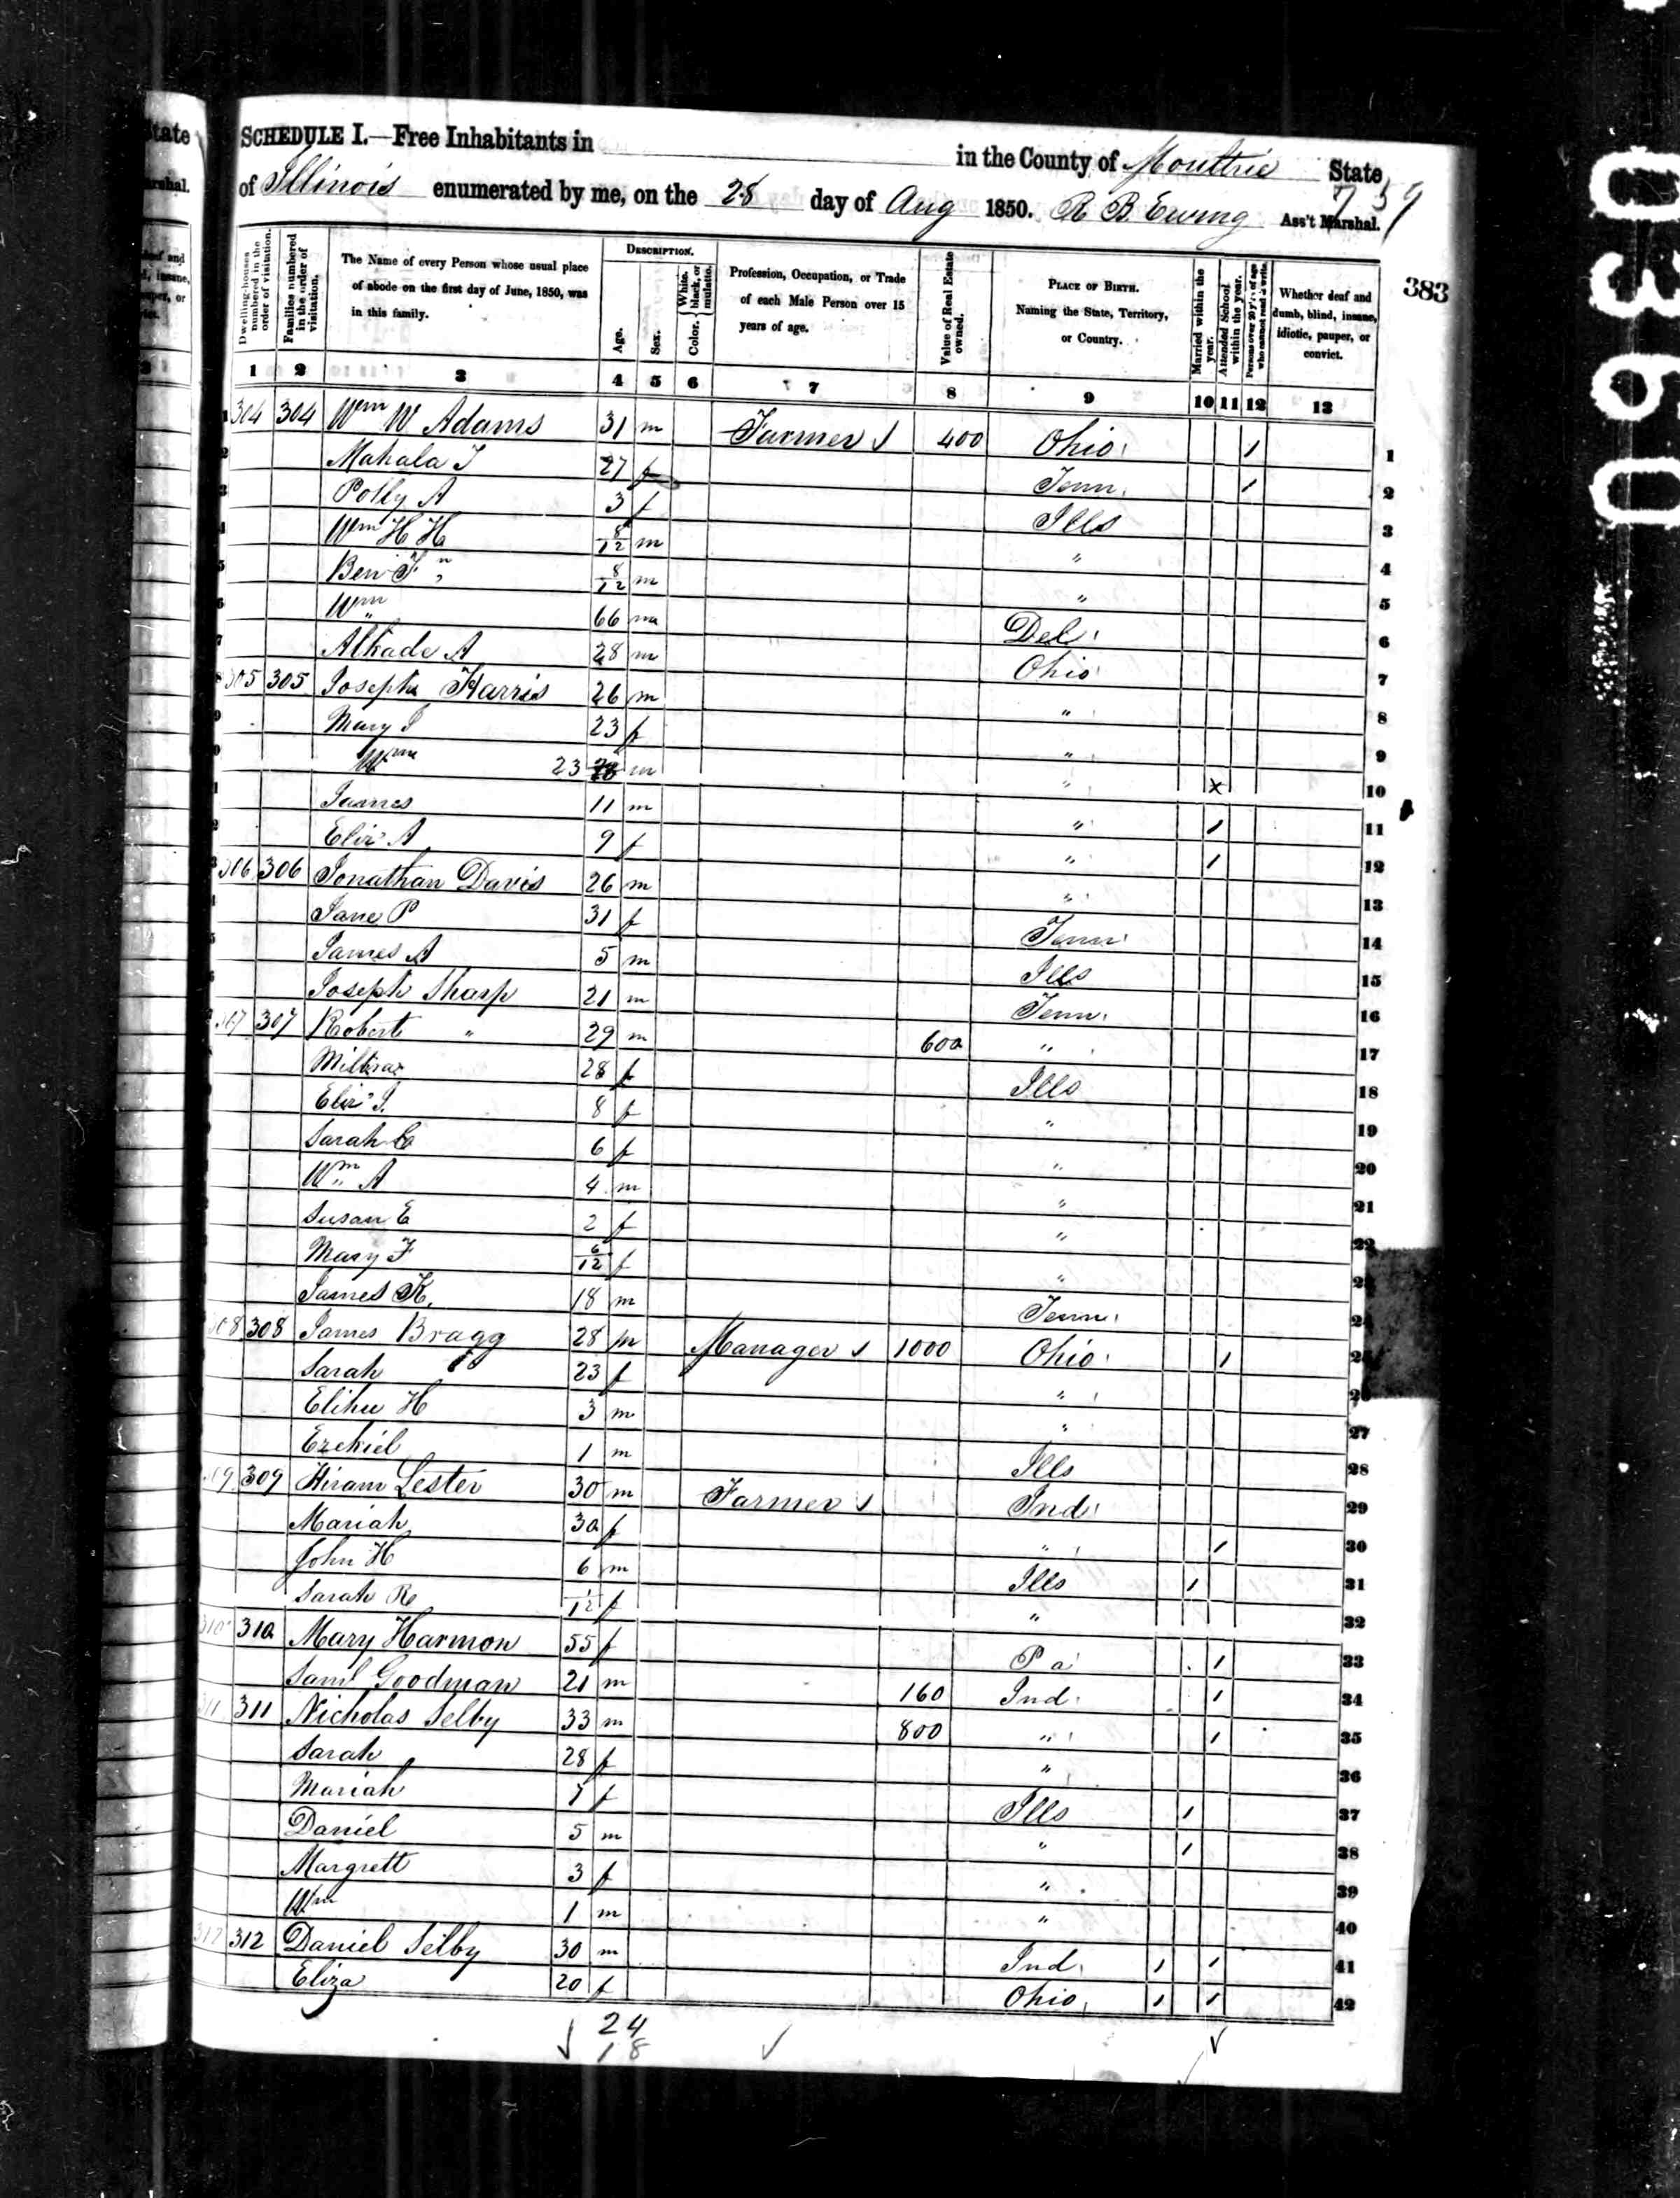 State
SCHEDULE I.—Free Inhabitants in in the County of Moultrie State
of Illinois enumerated by me, on the 28 day of Aug 1850. R B Ewing Ass't Marshal.
759
383
0930
Dwelling-houses numbered in the order of visitation.
Families numbered in the order of visitation.
The Name of every Person whose usual place of abode on the first day of June, 1850, was in this family.
DESCRIPTION.
Age.
Sex.
Color. White, black, or mulatto.
Profession, Occupation, or Trade of each Male Person over 15 years of age.
Value of Real Estate owned.
PLACE OF BIRTH. Naming the State, Territory, or Country.
Married within the year.
Attended School within the year.
Persons over 20 y'rs of age who cannot read & write.
Whether deaf and dumb, blind, insane, idiotic, pauper, or convict.
1 2 3 4 5 6 7 8 9 10 11 12 13
304 304 Wm W Adams 31 m Farmer 400 Ohio 1 1
2 Mahala J 27 f Tenn 1 2
3 Polly A 3 f Ills 3
Wm H H 8/12 m " 4
5 Benj F " 8/12 m " 5
6 Wm " 66 m Del 6
Alkade A 28 m Ohio 7
305 305 Joseph Harris 26 m " 8
Mary J 23 f " 9
Wm 23 m " x 10
James 11 m " 1 11
Eliz A 9 f " 1 12
306 306 Jonathan Davis 26 m " 13
Jane P 31 f Tenn 14
James A 5 m Ills 15
Joseph Sharp 21 m Tenn 16
307 307 Robert " 29 m 600 " 17
28 f Ills 18
Eliz J. 8 f " 19
Sarah C 6 f " 20
Wm A 4 m " 21
Susan E 2 f " 22
Mary F 6/12 f " 23
James K. 18 m Tenn 24
308 308 James Bragg 28 m Manager 1000 Ohio 1 25
Sarah 23 f " 26
Elihu H 3 m " 27
Ezekiel 1 m Ills 28
309 309 Hiram Lester 30 m Farmer Ind 29
Mariah 30 f " 1 30
John H 6 m Ills 1 31
Sarah R 1/12 f " 32
310 310 Mary Harmon 55 f Pa 1 33
Saml Goodman 21 m 160 Ind 1 34
311 311 Nicholas Selby 33 m 800 " 1 35
Sarah 28 f " 36
Mariah 7 f Ills 1 37
Daniel 5 m " 1 38
Margrett 3 f " 39
Wm 1 m " 40
312 312 Daniel Selby 30 m Ind 1 1 41
Eliza 20 f Ohio 1 1 42
24
18